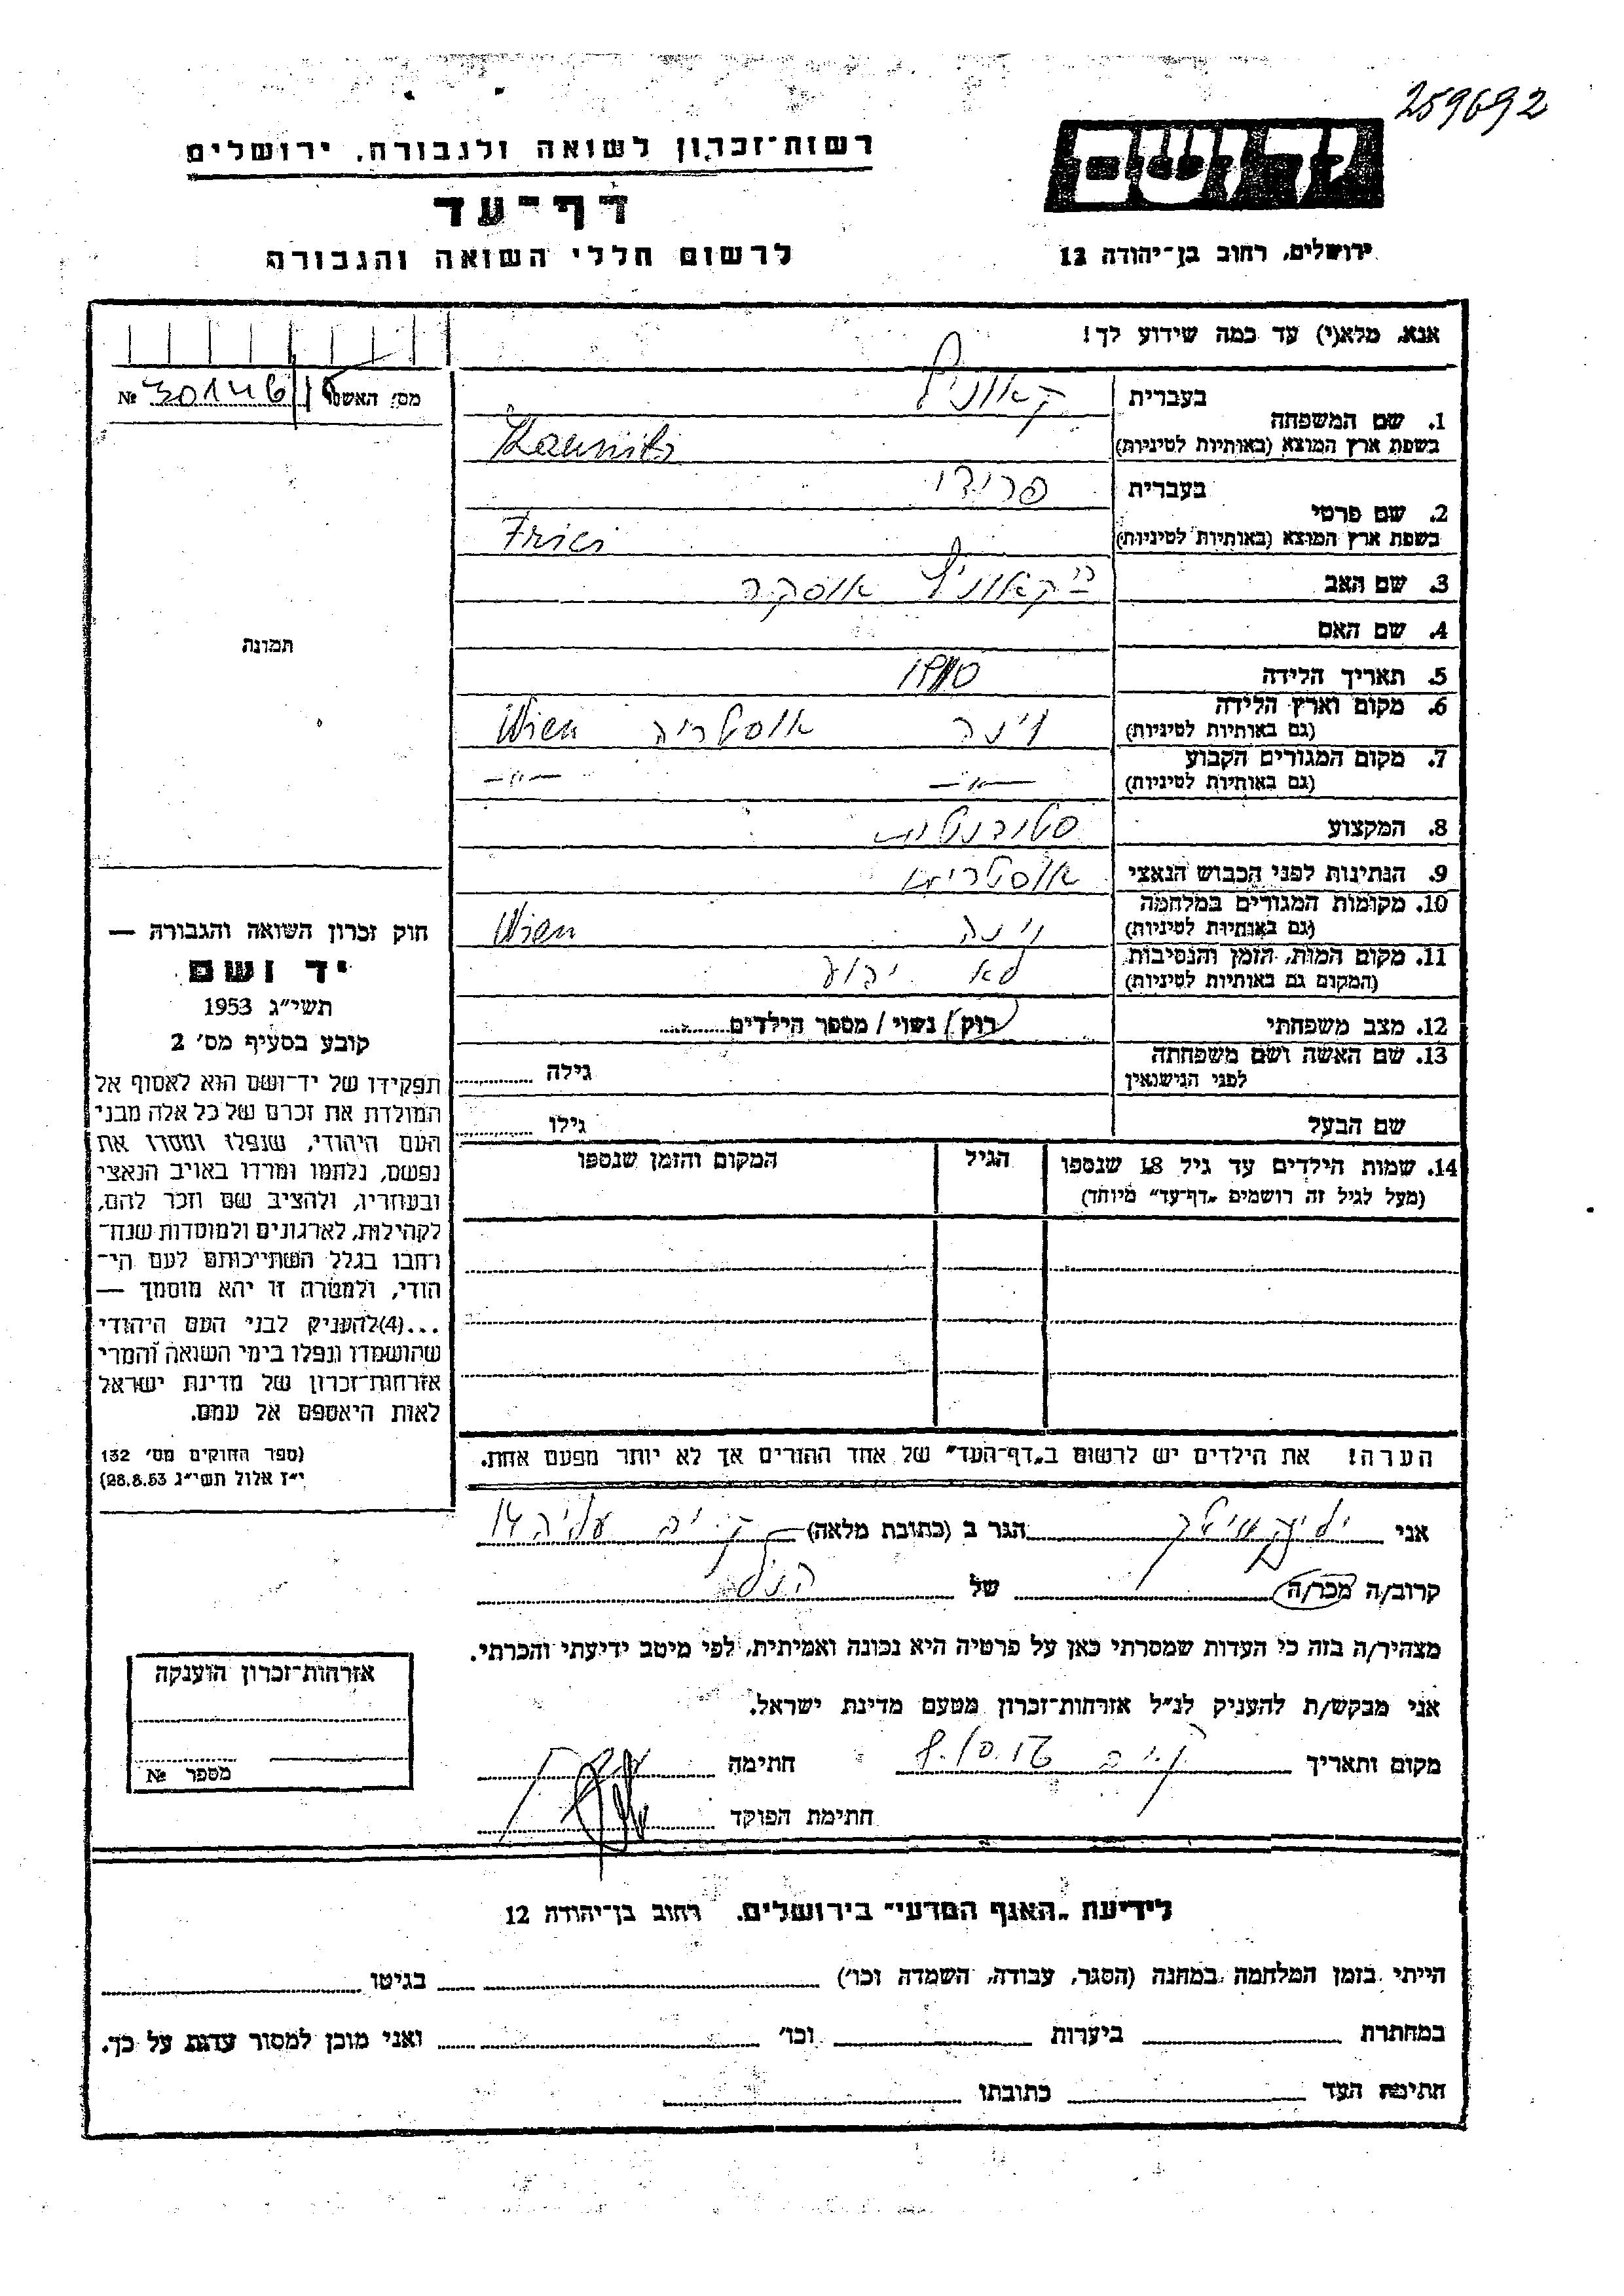 259692
יד ושם
רשות־זכרון לשואה ולגבורה, ירושלים
דף־עד
לרשום חללי השואה והגבורה
ירושלים, רחוב בן־יהודה 12
אנא, מלא(י) עד כמה שידוע לך!
מס׳ האשה № 30146/
1. שם המשפחה
בעברית קאוניץ
בשפת ארץ המוצא (באותיות לטיניות) Kaunitz
2. שם פרטי
בעברית פרידי
בשפת ארץ המוצא (באותיות לטיניות) Frici
3. שם האב קאוניץ אוסקר
4. שם האם
5. תאריך הלידה
6. מקום וארץ הלידה
(גם באותיות לטיניות) וינה אוסטריה Wien
7. מקום המגורים הקבוע
(גם באותיות לטיניות) —״— —״—
8. המקצוע סטודנטית
9. הנתינות לפני הכבוש הנאצי אוסטרית
10. מקומות המגורים במלחמה
(גם באותיות לטיניות) וינה Wien
11. מקום המות, הזמן והנסיבות
(המקום גם באותיות לטיניות) לא ידוע
12. מצב משפחתי רוק / נשוי / מספר הילדים
13. שם האשה ושם משפחתה
לפני הנישואין גילה
שם הבעל גילו
14. שמות הילדים עד גיל 18 שנספו הגיל המקום והזמן שנספו
(מעל לגיל זה רושמים „דף־עד״ מיוחד)
הערה! את הילדים יש לרשום ב„דף־העד״ של אחד ההורים אך לא יותר מפעם אחת.
תמונה
חוק זכרון השואה והגבורה —
יד ושם
תשי״ג 1953
קובע בסעיף מס׳ 2
תפקידו של יד־ושם הוא לאסוף אל
המולדת את זכרם של כל אלה מבני
העם היהודי, שנפלו ומסרו את
נפשם, נלחמו ומרדו באויב הנאצי
ובעוזריו, ולהציב שם וזכר להם,
לקהילות, לארגונים ולמוסדות שנח־
רבו בגלל השתייכותם לעם הי־
הודי, ולמטרה זו יהא מוסמך —
...(4)להעניק לבני העם היהודי
שהושמדו ונפלו בימי השואה והמרי
אזרחות־זכרון של מדינת ישראל
לאות היאספם אל עמם.
(ספר החוקים מס׳ 132
י״ז אלול תשי״ג 28.8.53)
אני הגר ב (כתובת מלאה) עליה 14
קרוב/ה מכר/ה של הנ״ל
מצהיר/ה בזה כי העדות שמסרתי כאן על פרטיה היא נכונה ואמיתית, לפי מיטב ידיעתי והכרתי.
אני מבקש/ת להעניק לנ״ל אזרחות־זכרון מטעם מדינת ישראל.
מקום ותאריך חתימה
חתימת הפוקד
אזרחות־זכרון הוענקה
מספר №
לידיעת „האגף המדעי״ בירושלים. רחוב בן־יהודה 12
הייתי בזמן המלחמה במחנה (הסגר, עבודה, השמדה וכו׳) בגיטו
במחתרת ביערות וכו׳ ואני מוכן למסור עדות על כך.
חתימת העד כתובתו